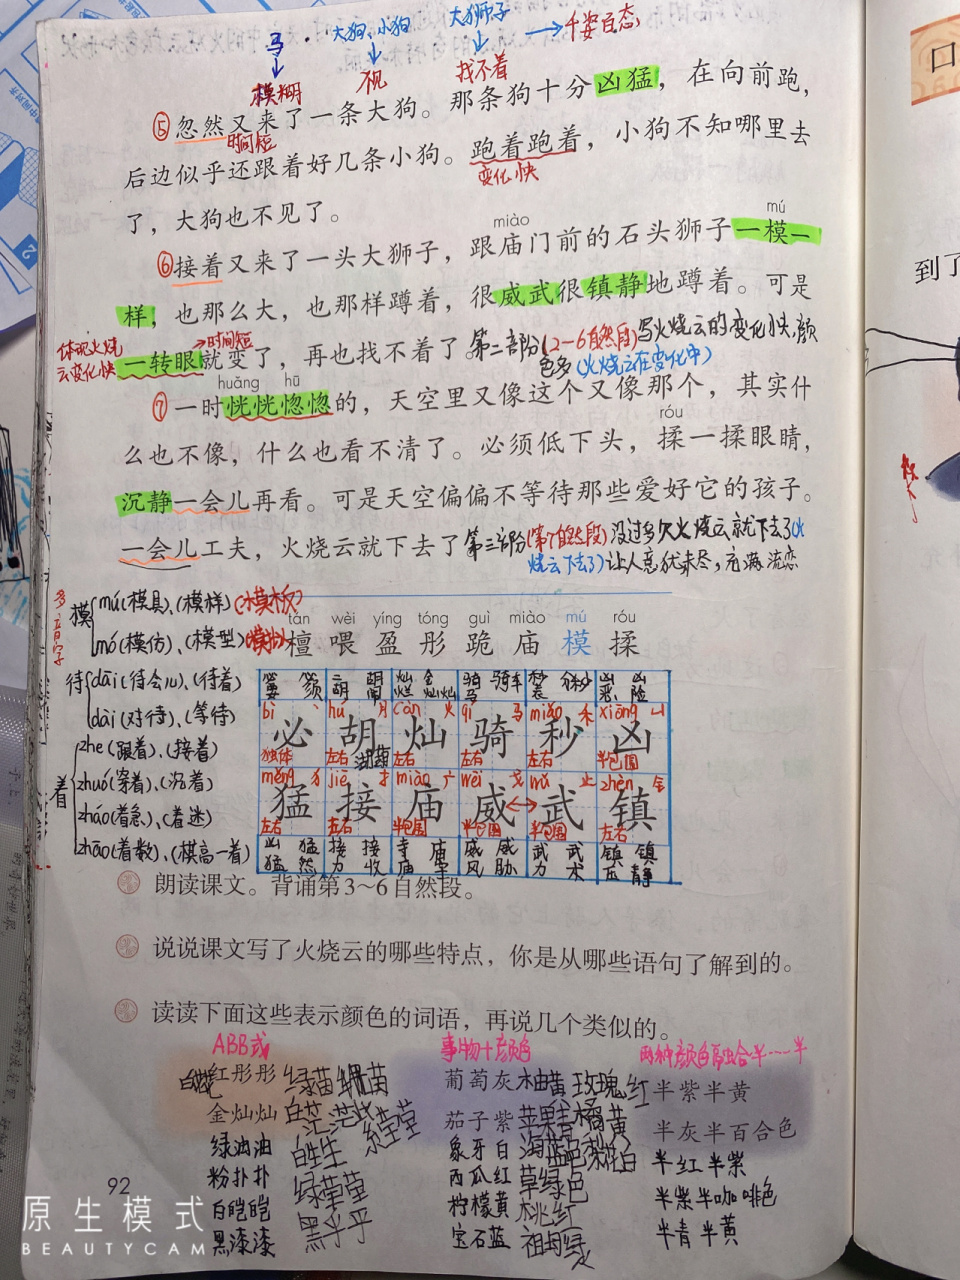 马
大狗、小狗
大狮子
千姿百态
模糊
找不着
⑤忽然又来了一条大狗。那条狗十分凶猛，在向前跑，
时间短
后边似乎还跟着好几条小狗。跑着跑着，小狗不知哪里去
变化快
了，大狗也不见了。
miào
mú
⑥接着又来了一头大狮子，跟庙门前的石头狮子一模一
样，也那么大，也那样蹲着，很威武很镇静地蹲着。可是
体现火烧
云变化快
时间短
一转眼就变了，再也找不着了。
第二部份(2-6自然段)写火烧云的变化快，颜
色多(火烧云在变化中)
huǎng hū
⑦一时恍恍惚惚的，天空里又像这个又像那个，其实什
么也不像，什么也看不清了。必须低下头，揉一揉眼睛，
róu
沉静一会儿再看。可是天空偏偏不等待那些爱好它的孩子。
一会儿工夫，火烧云就下去了。
第三部份(第7自然段)没过多久火烧云就下去了(火
烧云下去了)让人意犹未尽，充满流恋
多音字
模
mú(模具)、(模样)(模板)
mó(模仿)、(模型)(模拟)
待
dāi(待会儿)、(待着)
dài(对待)、(等待)
着
zhe(跟着)、(接着)
zhuó(穿着)、(沉着)
zháo(着急)、(着迷)
zhāo(着数)、(棋高一着)
tán wèi yíng tóng guì miào mú róu
檀 喂 盈 彤 跪 庙 模 揉
bì hú càn qí miǎo xiōng
必 胡 灿 骑 秒 凶
独体 左右 左右 左右 左右 半包围
měng jiē miào wēi wǔ zhèn
猛 接 庙 威 武 镇
左右 左右 半包围 半包围 半包围 左右
凶猛 猛然 接力 接收 寺庙 庙宇 威风 威胁 武力 武术 镇压 镇静
朗读课文。背诵第3~6自然段。
说说课文写了火烧云的哪些特点，你是从哪些语句了解到的。
读读下面这些表示颜色的词语，再说几个类似的。
ABB式
事物+颜色
两种颜色融合 半……半
红彤彤 绿苗苗
葡萄灰 柚黄 玫瑰红
半紫半黄
金灿灿 白茫茫
茄子紫 苹果青 橘黄
半灰半百合色
绿油油 白生生
象牙白 海蓝色
半红半紫
粉扑扑 绿莹莹
西瓜红 草绿色
半紫半咖啡色
白皑皑 黑乎乎
柠檬黄 桃红
半青半黄
黑漆漆
宝石蓝 祖母绿
92
到了
口
原生模式
BEAUTYCAM